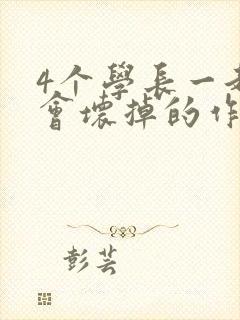 4个學長一
會壞掉的作
彭芸